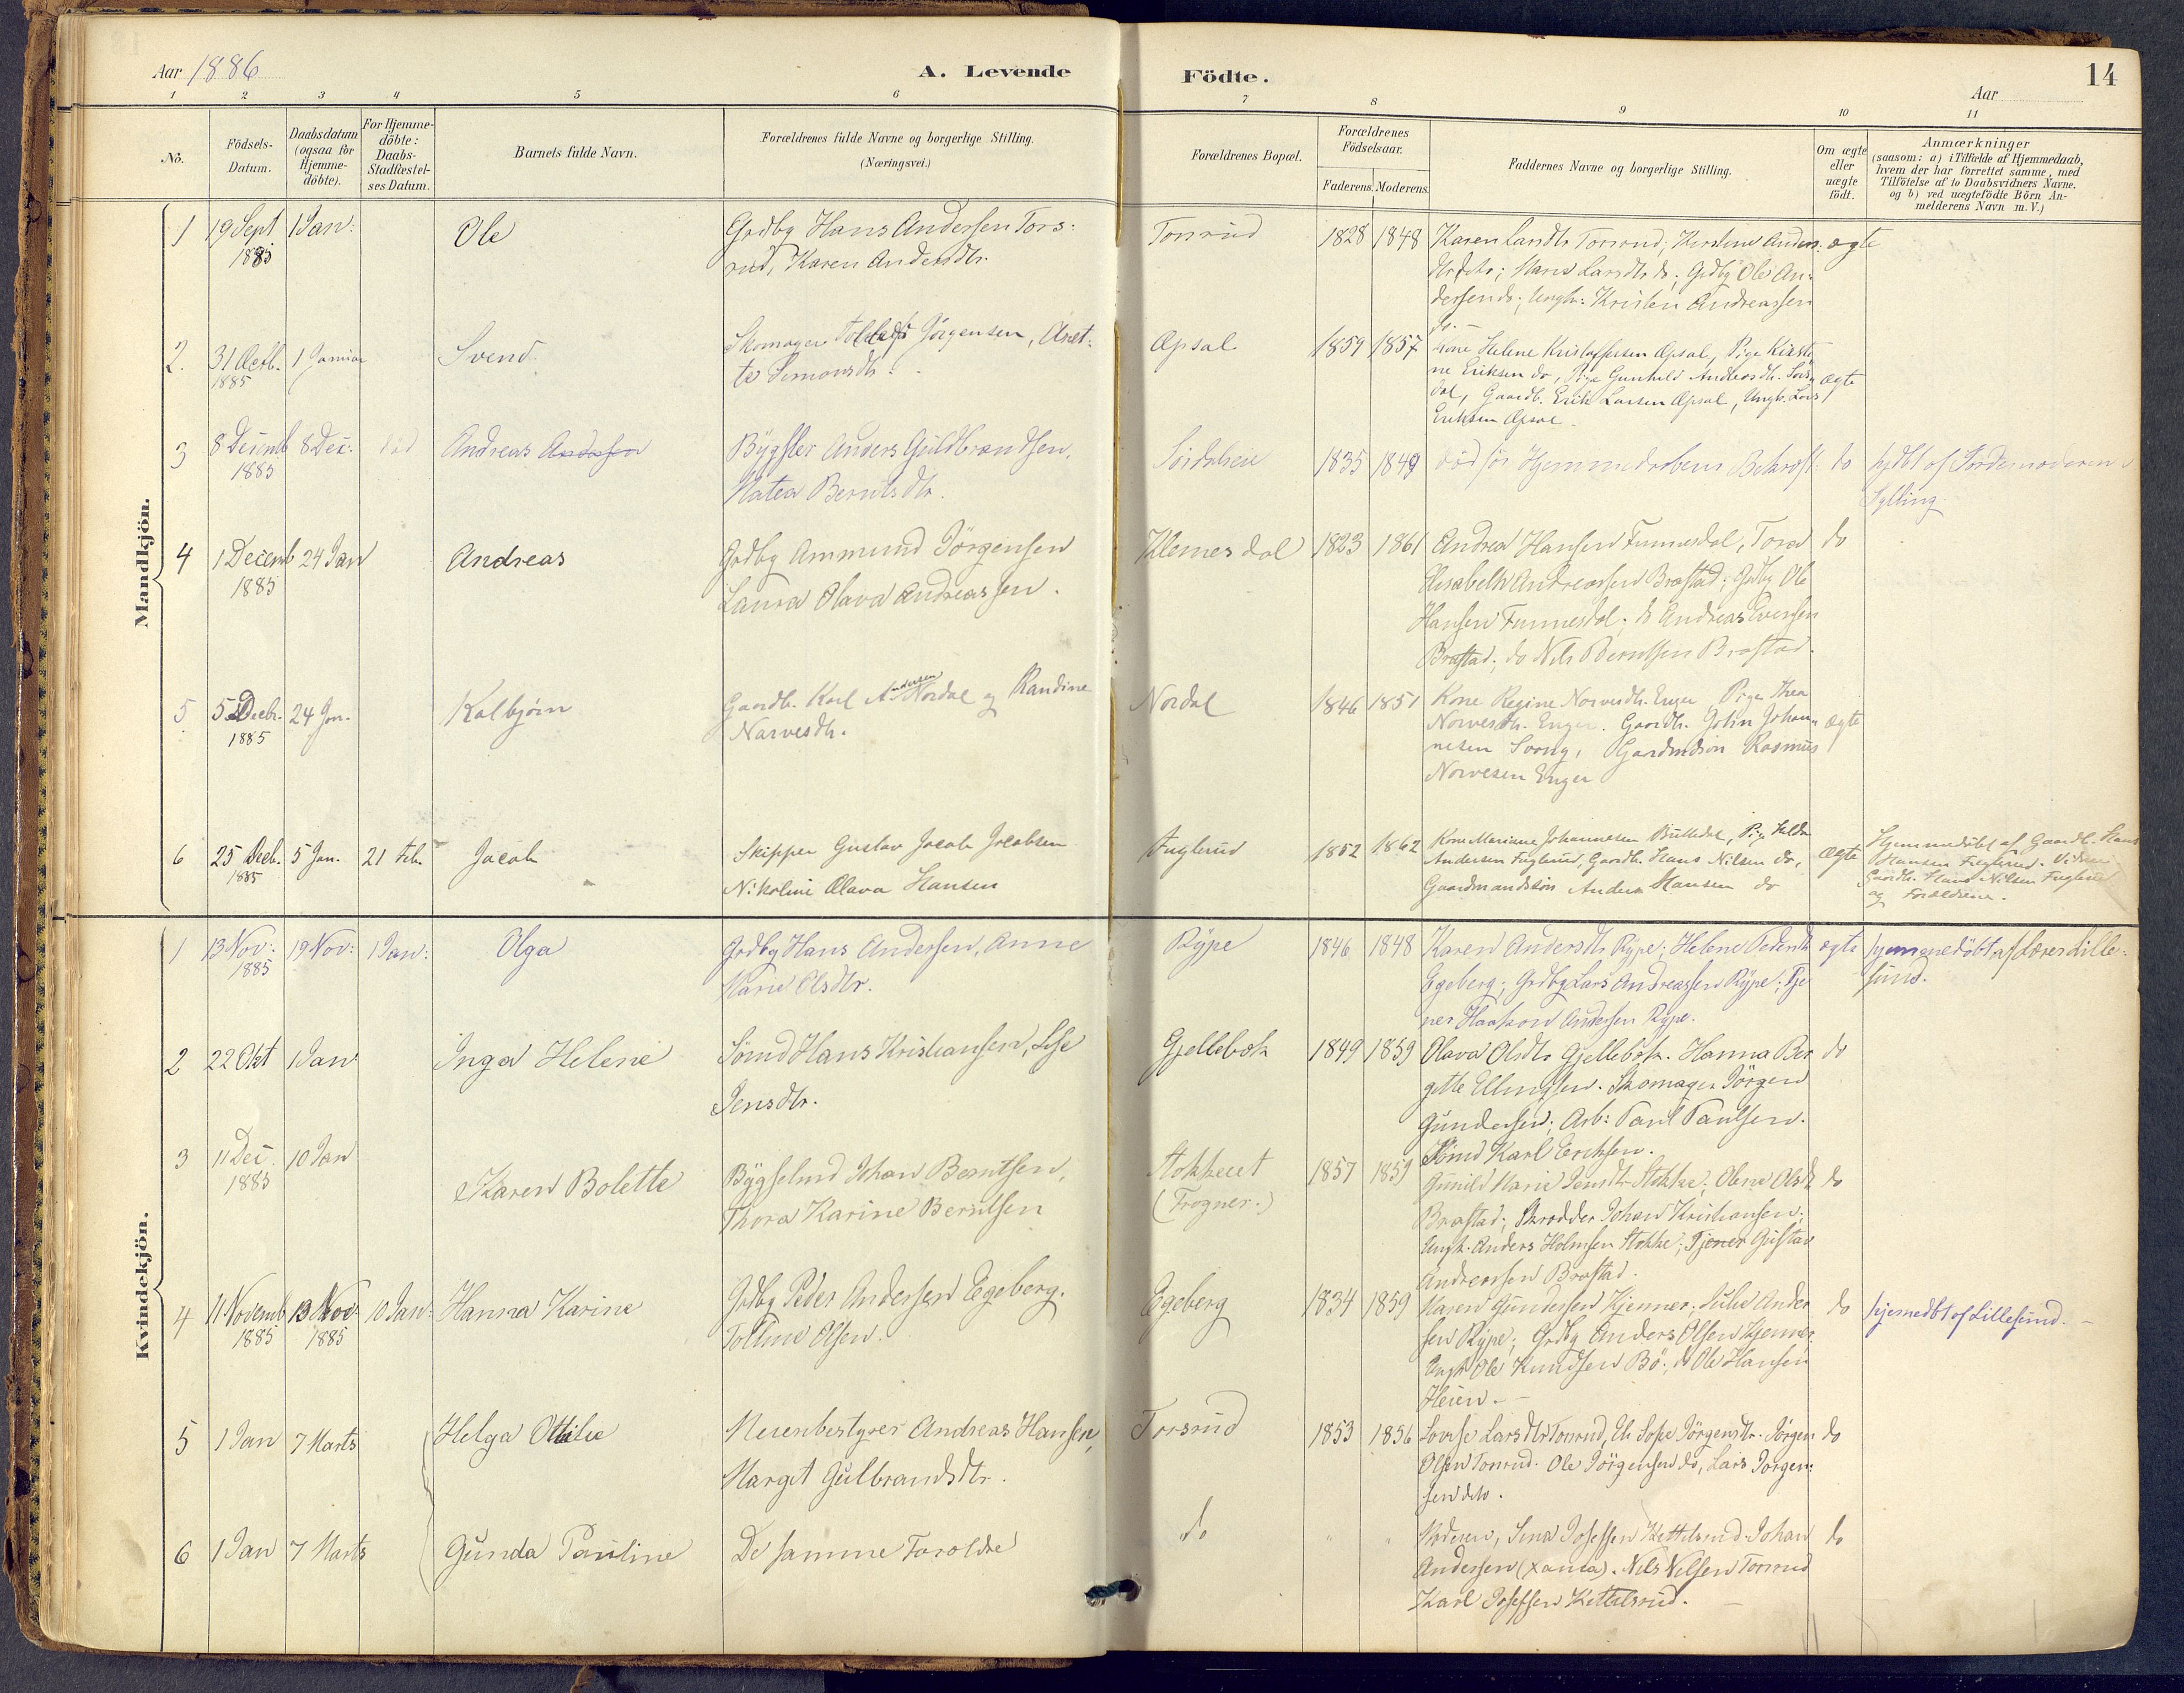 Aar 1886
A. Levende
Födte.
14
Aar
1 2 3 4 5 6 7 8 9 10 11
No.
Födsels-
Datum.
Daabsdatum
(ogsaa for
Hjemme-
döbte).
For Hjemme-
döbte:
Daabs-
Stadfæstel-
ses Datum.
Barnets fulde Navn.
Forældrenes fulde Navne og borgerlige Stilling.
(Næringsvei.)
Forældrenes Bopæl.
Forældrenes
Födselsaar.
Faderens. Moderens.
Faddernes Navne og borgerlige Stilling.
Om ægte
eller
uægte
födt.
Anmærkninger
(saasom: a) i Tilfælde af Hjemmedaab,
hvem der har forrettet samme, med
Tilföielse af to Daabsvidners Navne.
og b) ved uægtefödte Börn An-
melderens Navn m.V.)
Mandkjön.
1
19 Sept
1885
1 Jan:
Ole
Grdbg Hans Andersen Tors-
rud, Karen Andersdtr.
Torsrud
1828
1848
Karen Larsdtr Torsrud;
dersen do; Ungk: Kristen Andreassen
do. -
ægte
2.
31 Octb.
1885
1 Januar
Svend.
Skomager Jörgensen, Anet-
te Simonsdtr.
Opsal
1859
1857
Kone Helene Kristoffersen Opsal, Pige Kirsti-
ne Eriksen do, Pige Gunhild Andreasdtr.
dal, Gaardb. Erik Larsen Opsal, Ungk. Lars
Eriksen Opsal.
ægte
3
8 Decemb
1885
8 Dec:
död
Andreas Andersen
Bygsler Anders Guldbrandsen,
Matea Berntsdtr.
Sördalen
1835
1849
död för Hjemmedaabens Bekræft.
do
hjdbt af Jordemoderen
Sylling.
4
1 Decemb
1885
24 Jan
Andreas
Grdbg Ammund Jörgensen
Laura Olava Andreassen.
Klemesdal
1823
1861
Andrea Hansen Tunnesdal, Tora
Elisabeth Andreassen Brastad; Grdbg Ole
Hansen Tunnesdal; do Andreas Evensen
Brastad; do Nils Berntsen Brastad.
do
5
5 Decbr.
1885
24 Jan.
Kolbjörn
Gaardb. Karl Andersen Nordal og Randine
Narvesdtr.
Nordal
1846
1851
Kone Regine Narvesdtr. Enger, Pige Thea
Narvesdtr. Enger. Gaardb. Johan-
nesen Svang, Gaardmdsön Rasmus
Narvesen Enger
ægte
6
25 Decb.
1885
5 Jan.
21 Feb.
Jacob
Skipper Gustav Jacob Jacobsen
Nikoline Olava Hansen
Fuglerud
1852
1862
Kone Marianne Johannesen Pige Hilda
Andersen Fuglerud, Gaardb. Hans Nilsen do,
Gaardmandssön Anders Hansen do
ægte
Hjemmedöbt af Gaardb. Hans
Hansen Fuglerud. Vidner
Gaardb. Hans Nilsen Fuglerud
og Forældrene.
Kvindekjön.
1
13 Nov:
1885
19 Nov:
1 Jan:
Olga
Grdbg Hans Andersen, Anne
Marie Olsdtr.
Rype
1846
1848
Karen Andersdtr Rype; Helene Pedersdtr
Egeberg; Grdbg Lars Andreassen Rype; Tje-
ner Haakon Andersen Rype.
ægte
hjemmedöbt af Lærer Lille-
sund.
2
22 Okt
1 Jan
Inga Helene
Hans Kristiansen, Lise
Jensdtr.
Gjellebæk
1849
1859
Olava Olsdtr Gjellebæk. Hanna Ber-
gitte Ellingsen. Skomager Jörgen
Gundersen; Arb: Paul Paulsen.
Karl Eriksen.
do
3
11 Dec
1885
10 Jan
Karen Bolette
Bygselmd Johan Berntsen,
Thora Karine Berntsen
Stokkeeet
(Frogner.)
1857
1859
Gunild Marie Stokke; Olene Olsdtr
Brastad; Skrædder Johan Kristiansen;
Ungk. Anders Holmsen Stokke; Tjener Gustav
Andreassen Brastad.
do
4
11 Novemb
1885
13 Nov:
1885
10 Jan:
Hanna Karine
Grdbg Peder Andersen Egeberg.
Toline Olsen.
Egeberg
1834
1859
Karen Gundersen Kjenner; Julie Ander-
sen Rype; Grdbg Anders Olsen Kjenner;
Ungk Ole Knudsen Bö; do Ole Hansen
Heien. -
do
hjemedbt af Lillesund. -
5
1 Jan
7 Marts
Helga Ottilie
Meieribestyrer Andreas Hansen,
Margit Gulbrandsdtr.
Torsrud
1853
1856
Lovise Larsdtr Torsrud, Eli Sofie Jörgensdtr. Jörgen
Olsen Torsrud. Ole Jörgensen do, Lars Jörgen-
sen dito.
do
6
1 Jan
7 Marts
Gunda Pauline
De samme Foroldre
do
"
"
Moderen, Josefsen Kettilsrud. Johan
Andersen (Xania). Nils Nilsen Torsrud
Karl Josefsen Kettilsrud. -
do